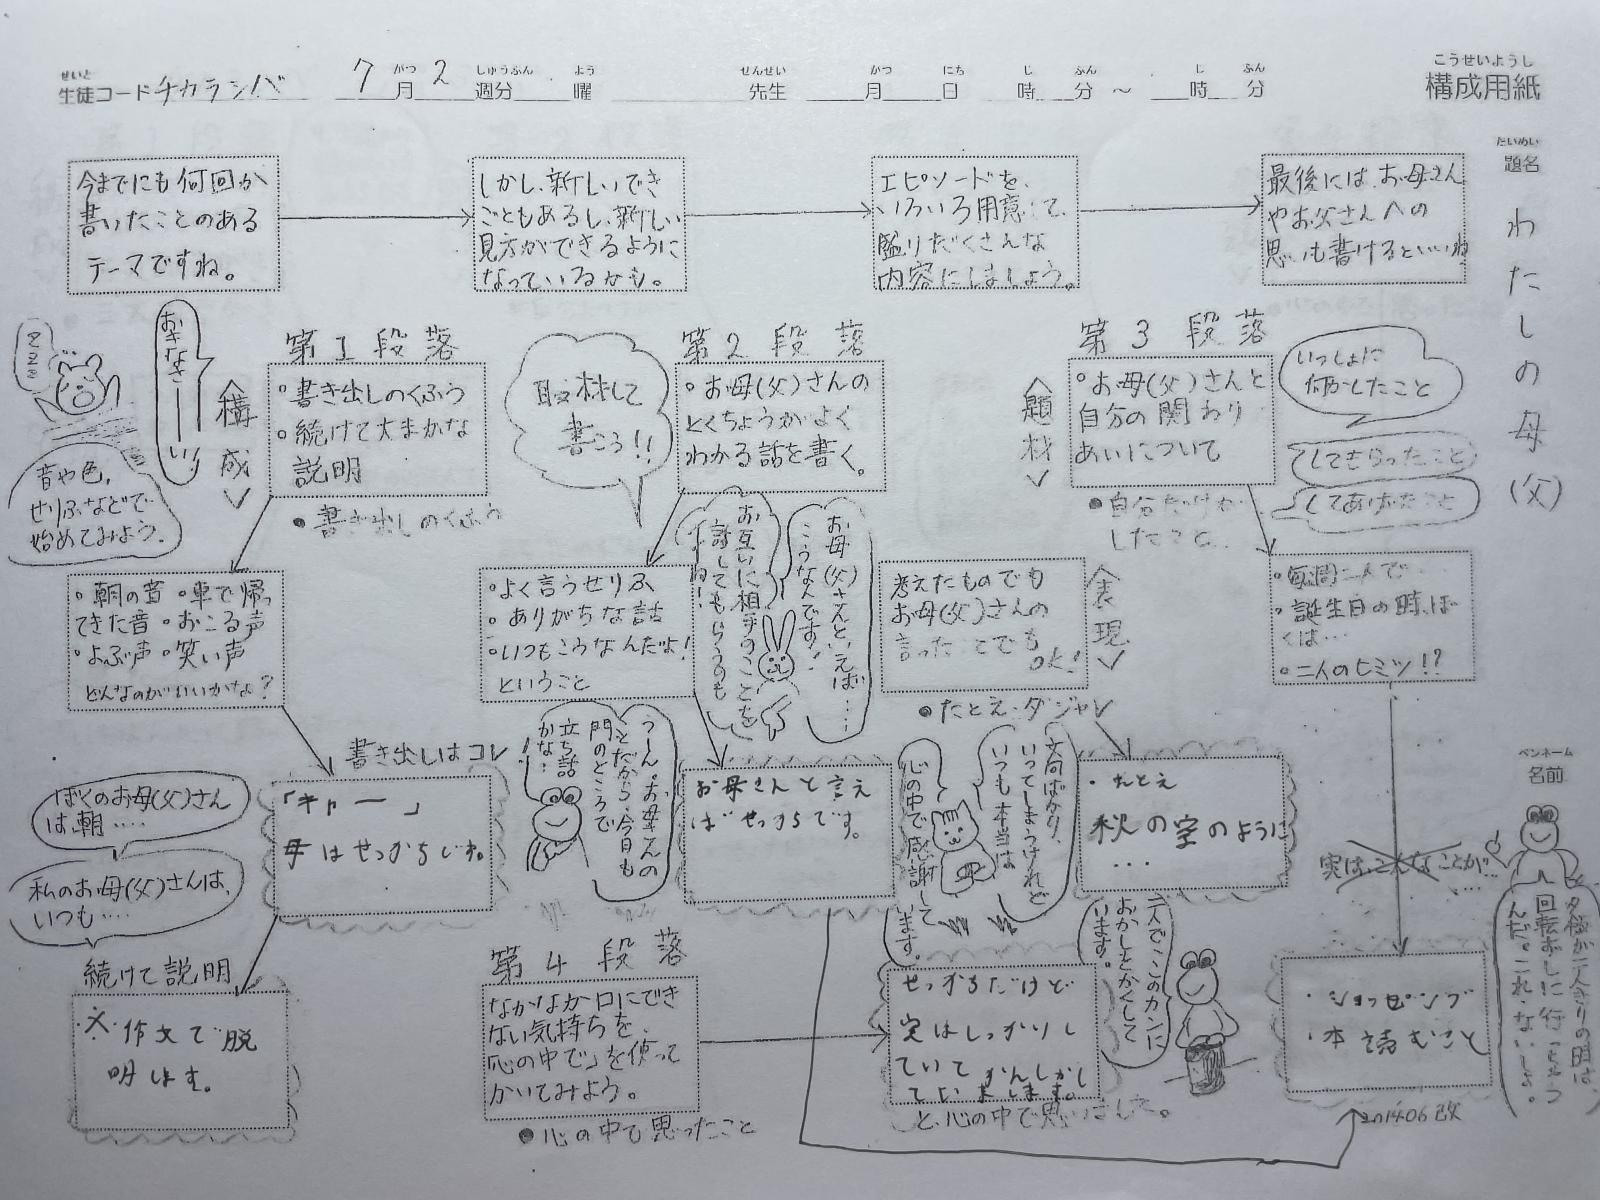 せいと がつ しゅうぶん よう せんせい がつ にち じ ふん じ ふん
生徒コードチカラシバ 7月2週分 曜 先生 月 日 時 分 ～ 時 分
こうせいようし
構成用紙
だいめい
題名
わたしの母(父)
今までにも何回か
書いたことのある
テーマですね。
しかし、新しいでき
ごともあるし、新しい
見方ができるように
なっているかも。
エピソードを、
いろいろ用意して、
盛りだくさんな
内容にしましょう。
最後には、お母さん
やお父さんへの
思いも書けるといいね
ZZZZ
おきなさーーい!
〈構成〉
音や色、
せりふなどで
始めてみよう。
第1段落
・書き出しのくふう
・続けて大まかな
説明
●書き出しのくふう
取材して
書こう!!
第2段落
・お母(父)さんの
とくちょうがよく
わかる話を書く。
〈題材〉
第3段落
・お母(父)さんと
自分の関わり
あいについて
いっしょに
何かしたこと
してもらったこと
してあげたこと
●自分だけが
したこと..
・朝の音・車で帰っ
てきた音・おこる声
・よぶ声・笑い声
どんなのがいいかな?
・よく言うせりふ
・ありがちな話
・いつもこうなんだよ!
ということ
お互いに相手のことを
話してもらうのも
いいね!
お母(父)さんといえば....
こうなんです!
考えたものでも
お母(父)さんの
言ったことでも
OK!
〈表現〉
●たとえ・ダジャレ
・毎週二人で...
・誕生日の時、ぼ
くは...
・二人のヒミツ!?
書き出しはコレ
「キャー」
母はせっかちしね。
ぼくのお母(父)さん
は、朝....
私のお母(父)さんは、
いつも....
続けて説明
※作文で脱
明します。
うーん。お母さんの
ことだから、今日も
門のところで
立ち話
かな..!
お母さんと言え
ばせっかちです。
文句ばかり、
いってしまうけれど
いつも本当は
心の中で感謝して
います。
・たとえ
秋の空のように
...
実は、こんなことが...
ペンネーム
名前
夕食が二人きりの時は、
回転ずしに行っちゃう
んだ。これ、ないしょ。
第4段落
なかなか口にでき
ない気持ちを、
「心の中で」を使って
かいてみよう。
●心の中で思ったこと
せっかちだけど
実はしっかりし
ていてかんしゃし
ています。
と、心の中で思いました。
二人でこのカンに
おかしをかくして
います。
・ショッピング
・本読むこと
201406改